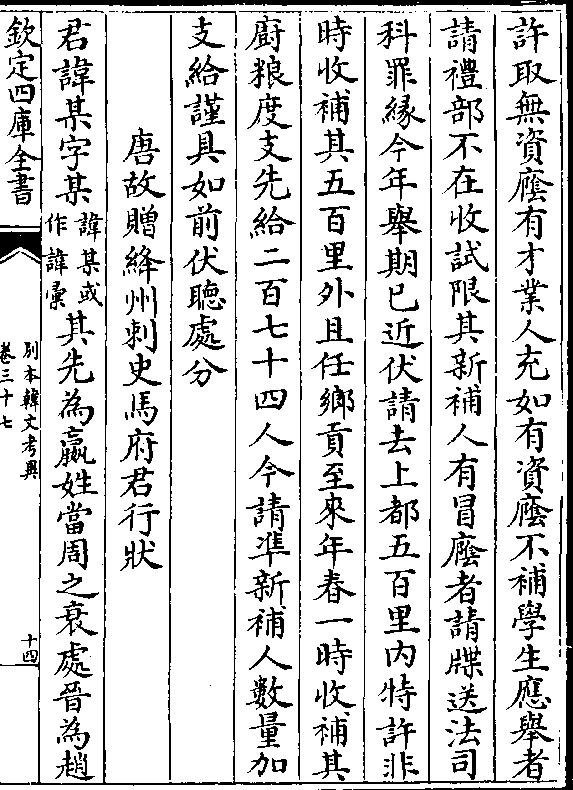 許取無資廕有才業人充如有資廕不補學生應舉者
請禮部不在收試限其新補人有冒廕者請牒送法司
科罪縁今年舉期已近伏請去上都五百里内特許非
時收補其五百里外且任鄉貢至來年春一時收補其
廚粮度支先給二百七十四人今請準新補人數量加
支給謹具如前伏聽處分
唐故贈絳州刺史馬府君行狀
君諱某字某諱某或作諱彚其先為嬴姓當周之衰處晉為趙
欽定四庫全書
別本韓文考異
卷三十七
十四